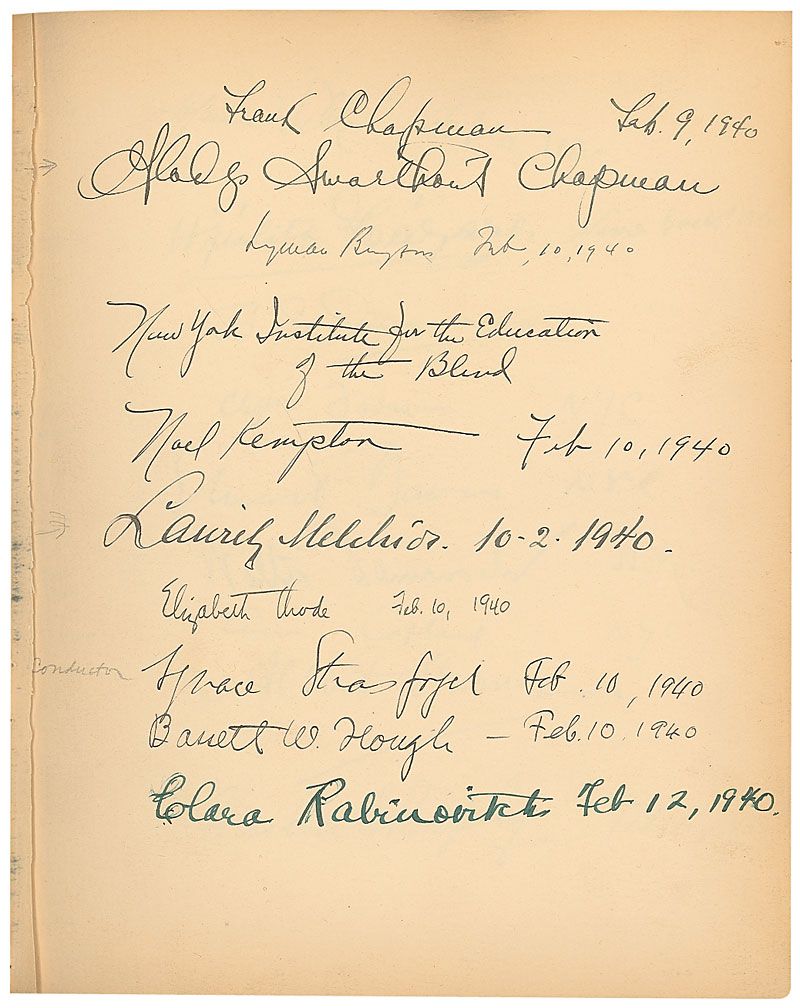 Frank Chapman Feb. 9, 1940
Gladys Swarthout Chapman
Lyman Bryson Feb, 10, 1940
New York Institute for the Education
of the Blind
Noel Kempton Feb 10, 1940
Lauritz Melchior. 10-2. 1940.
Elizabeth Thode Feb. 10, 1940
conductor Ignace Strasfogel Feb. 10, 1940
Barrett W. Hough – Feb. 10. 1940
Clara Rabinovitch Feb 12, 1940.